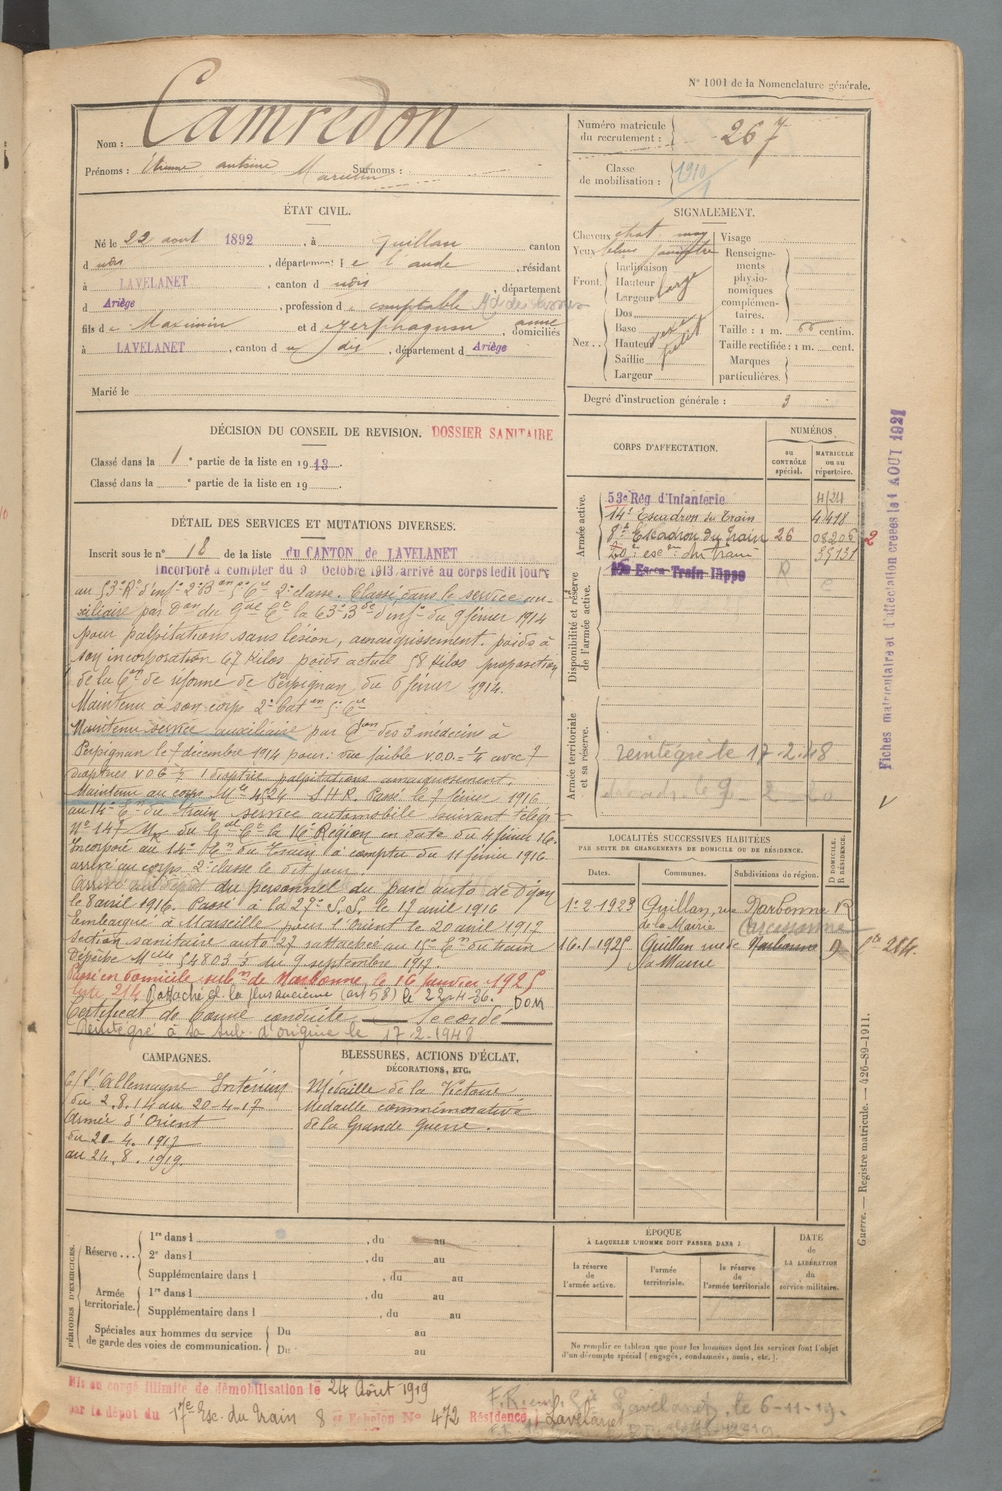 N° 1001 de la Nomenclature générale.
Nom : Camredon
Prénoms : Etienne antoine Marcelin Surnoms :
Numéro matricule du recrutement : 267
Classe de mobilisation : 1910/1
ÉTAT CIVIL.
Né le 22 aout 1892, à Quillan canton
d udis, département de l'aude, résidant
à LAVELANET, canton d udis, département
d Ariège, profession de comptable
fils de Maximin et d anne domiciliés
à LAVELANET, canton d u dis, département d Ariège
Marié le
SIGNALEMENT.
Cheveux chat moy
Yeux bleus
Front. Inclinaison
Hauteur large
Largeur
Nez.. Dos
Base
Hauteur
Saillie
Largeur
Visage
Renseignements physionomiques complémentaires.
Taille : 1 m. 66 centim.
Taille rectifiée : 1 m. cent.
Marques particulières.
Degré d'instruction générale : 3
DÉCISION DU CONSEIL DE REVISION. DOSSIER SANITAIRE
Classé dans la 1e partie de la liste en 1913.
Classé dans la e partie de la liste en 19
DÉTAIL DES SERVICES ET MUTATIONS DIVERSES.
Inscrit sous le n° 18 de la liste du CANTON de LAVELANET
Incorporé à compter du 9 Octobre 1913 arrivé au corps ledit jour
au 53e R d'Infie 2e Bon 5e Cie 2e classe. Classé dans le service au-
xiliaire par don du Gal Ct la 63e Bde d'infie du 9 février 1914
pour palpitations sans lésion, amaigrissement. poids à
son incorporation 67 Kilos poids actuel 58 Kilos proposition
de la Con de réforme de Perpignan du 6 février 1914.
Maintenu à son corps 2e Bat on 5e Cie
Maintenu service auxiliaire par Con des 3 médecins à
Perpignan le 7 décembre 1914 pour : vue faible V.O.D = 1/4 avec 7
dioptries V.O.G 1/2 1 dioptrie palpitations amaigrissement.
Maintenu au corps Mle 4524 S.H.R. Passé le 7 février 1916
au 14e En du Train service automobile suivant télég.
N° 147 Mx du Gal Ct la 16e Région en date du 4 février 16.
Incorporé au 14e En du Train à compter du 11 février 1916
arrivé au corps 2e classe le dit jour.
Arrivé au dépôt du personnel du parc auto de Dijon
le 8 avril 1916. Passé à la 27e S.S. le 17 avril 1916
Embarqué à Marseille pour l'Orient le 20 avril 1917
Section sanitaire auto 27 rattachée au 15e En du train
Dépêche Mlle 54803 du 9 septembre 1917.
Passé en Domicile subon de Narbonne le 16 Janvier 1925
liste 214 Rattaché à la plus ancienne (art 58) le 22-4-36. DOM
Certificat de Bonne conduite Accordé
Réintégré à sa sub. d'origine le 17-2-1948
CORPS D'AFFECTATION.
NUMÉROS
au CONTRÔLE spécial.
MATRICULE ou au répertoire.
Armée active.
53e Rég d'Infanterie 4524
14e Escadron du Train 4418
8e Escadron du Train 26 08206
20e esc on du train
Disponibilité et réserve de l'armée active.
Armée territoriale et sa réserve.
réintégré le 17-2-48
Fiches matriculaire et d'affectation créées le 1 AOUT 1921
LOCALITÉS SUCCESSIVES HABITÉES
PAR SUITE DE CHANGEMENTS DE DOMICILE OU DE RÉSIDENCE.
Dates. Communes. Subdivisions de région. D DOMICILE. R RÉSIDENCE.
1-2-1923 Quillan, rue de la Mairie Narbonne R
Carcassonne
16-1-1925 Quillan rue de la Mairie Narbonne D 214.
CAMPAGNES.
C/ l'Allemagne Intérieur
du 2.8.14 au 20-4-17
Armée d'Orient
du 21-4.1917
au 24.8.1919.
BLESSURES, ACTIONS D'ÉCLAT, DÉCORATIONS, ETC.
Médaille de la Victoire
Médaille commémorative
de la Grande Guerre.
Guerre. — Registre matricule. — 426-89-1911.
PÉRIODES D'EXERCICES.
Réserve ... 1re dans l , du au
2e dans l , du au
Supplémentaire dans l , du au
Armée territoriale. 1re dans l , du au
Supplémentaire dans l , du au
Spéciales aux hommes du service de garde des voies de communication. Du au
Du au
ÉPOQUE
À LAQUELLE L'HOMME DOIT PASSER DANS :
la réserve de l'armée active.
l'armée territoriale.
la réserve de l'armée territoriale
DATE de LA LIBÉRATION du service militaire.
Ne remplir ce tableau que pour les hommes dont les services font l'objet
d'un décompte spécial (engagés, condamnés, omis, etc.).
Mis en congé illimité de démobilisation le 24 Août 1919
par le dépôt du 17e Esc. du Train 8e Echelon N° 472 Résidence Lavelanet
Lavelanet, le 6-11-19.